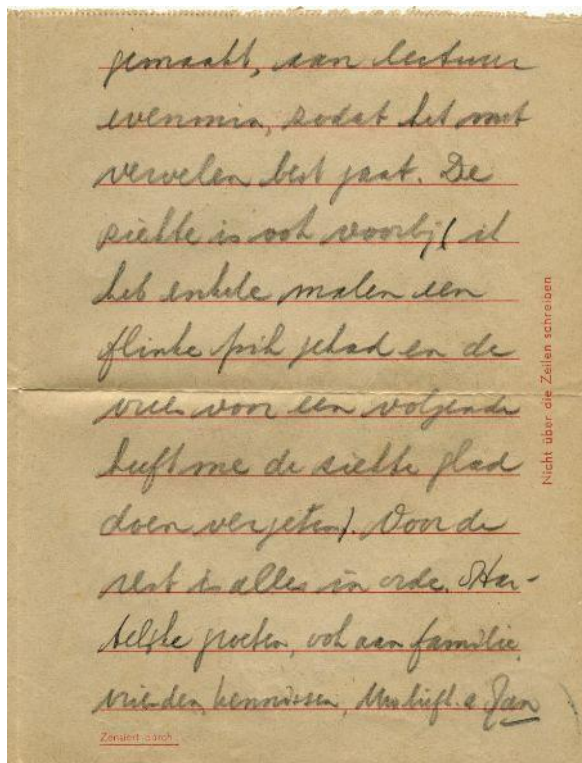 gemaakt, aan lectuur
evenmin, zodat het met
vervelen best gaat. De
ziekte is ook voorbij (ik
heb enkele malen een
flinke prik gehad en de
vrees voor een volgende
heeft me de ziekte glad
doen vergeten). Voor de
rest is alles in orde. Har-
telijke groeten, ook aan familie,
vrienden, kennissen, Jan
Zensiert durch
Nicht über die Zeilen schreiben